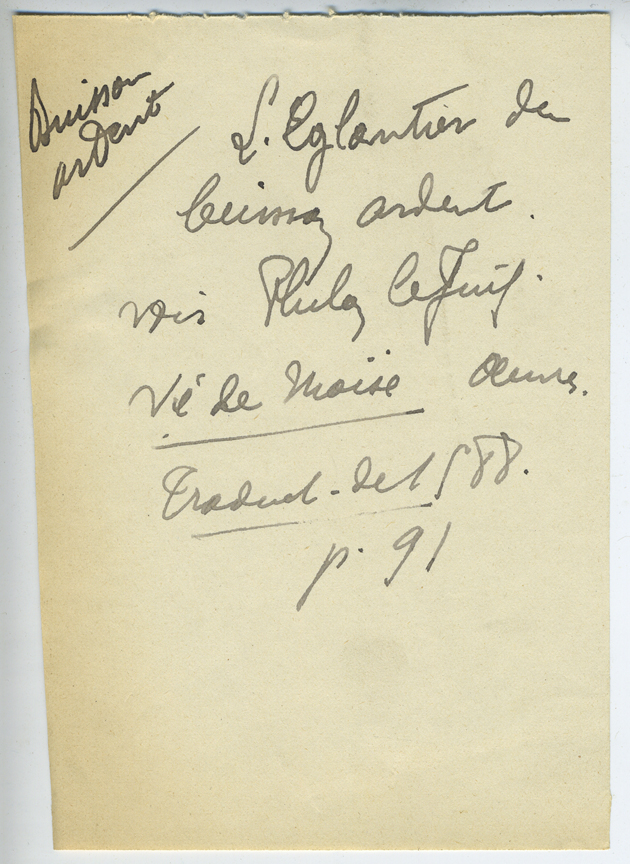 Buisson
ardent
L'Eglantier du
buisson ardent.
voir Philon le Juif.
Vie de Moïse Œuvres.
Traduct. de 1588.
p. 91